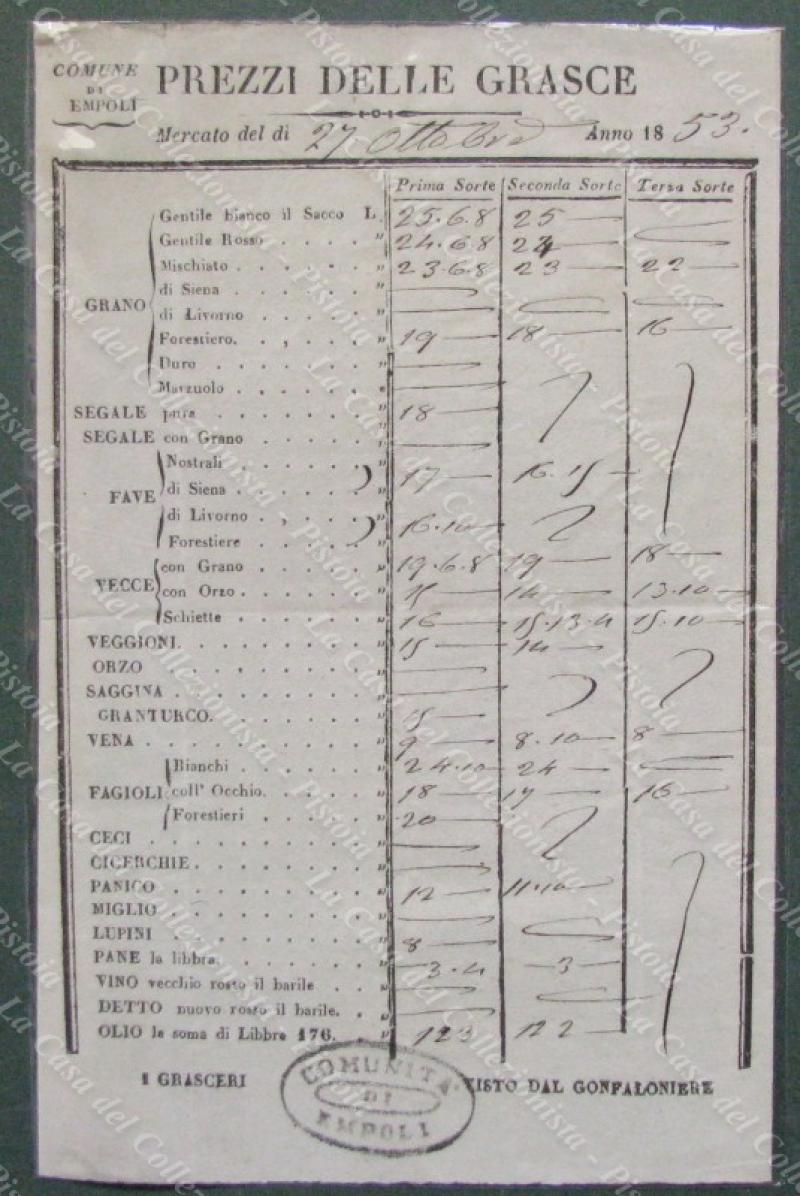 COMUNE
DI
EMPOLI
PREZZI DELLE GRASCE
Mercato del dì 27 Ottobre Anno 1853.
Prima Sorte Seconda Sorte Terza Sorte
GRANO
Gentile bianco il Sacco L. 25.6.8 25
Gentile Rosso . . . . " 24.6.8 24
Mischiato . . . . . . " 23.6.8 23 22
di Siena . . . . . . "
di Livorno . . . . . "
Forestiero. . , . . . " 19 18 16
Duro . . . . . . . "
Marzuolo . . . . . . "
SEGALE pura . . . . . . . " 18
SEGALE con Grano . . . . . "
FAVE
Nostrali . . . . . "
di Siena . . . . . . " 17 16.15
di Livorno . , . . "
Forestiere . . . . . " 16.10
VECCE
con Grano . . . . . " 19.6.8 19 18
con Orzo . . . . . . " 15 14 13.10
Schiette . . . . . . " 16 15.13.4 15.10
VEGGIONI. . . . . . . . . " 15 14
ORZO . . . . . . . . . "
SAGGINA . . . . . . . . . "
GRANTURCO. . . . . . . . " 15
VENA . . . . . . . . . . " 9 8.10 8
FAGIOLI
Bianchi . . . . . . " 24.10 24
coll' Occhio. . . . . " 18 17 16
Forestieri . . . . . " 20
CECI . . . . . . . . . . "
CICERCHIE. . . . . . . . "
PANICO . . . . . . . . . " 12 11.10
MIGLIO . . . . . . . . . "
LUPINI . . . . . . . . . " 8
PANE la libbra. . . . . . . " 3.4 3
VINO vecchio rosso il barile . . "
DETTO nuovo rosso il barile. . "
OLIO la soma di Libbre 176. . " 123 122
I GRASCERI
VISTO DAL GONFALONIERE
COMUNITÀ
DI
EMPOLI
La Casa del Collezionista - Pistoia